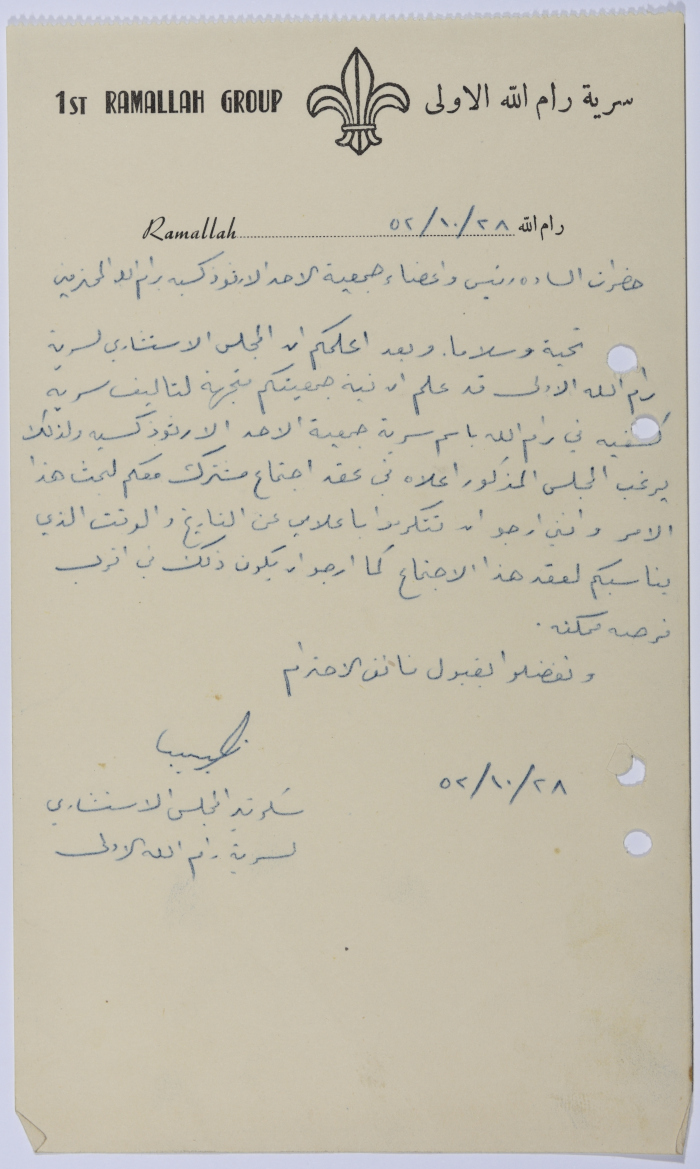 1ST RAMALLAH GROUP سرية رام الله الاولى
Ramallah ٥٢/١٠/٢٨ رام الله
حضرات الساده رئيس واعضاء جمعية الاحد الارثوذكسيه رام الله المحترمين
تحية وسلاما. وبعد اعلمكم ان المجلس الاستشاري لسرية
رام الله الاولى قد علم ان نية جمعيتكم متجهة لتاليف سريه
كشفيه في رام الله باسم سرية جمعية الاحد الارثوذكسيه ولذلك
يرغب المجلس المذكور اعلاه في عقد اجتماع مشترك معكم لبحث هذا
الامر وانني ارجو ان تتكرموا باعلامي عن التاريخ والوقت الذي
يناسبكم لعقد هذا الاجتماع كما ارجو ان يكون ذلك في اقرب
فرصه ممكنه.
وتفضلوا بقبول فائق الاحترام
٥٢/١٠/٢٨
سكرتير المجلس الاستشاري
لسرية رام الله الاولى